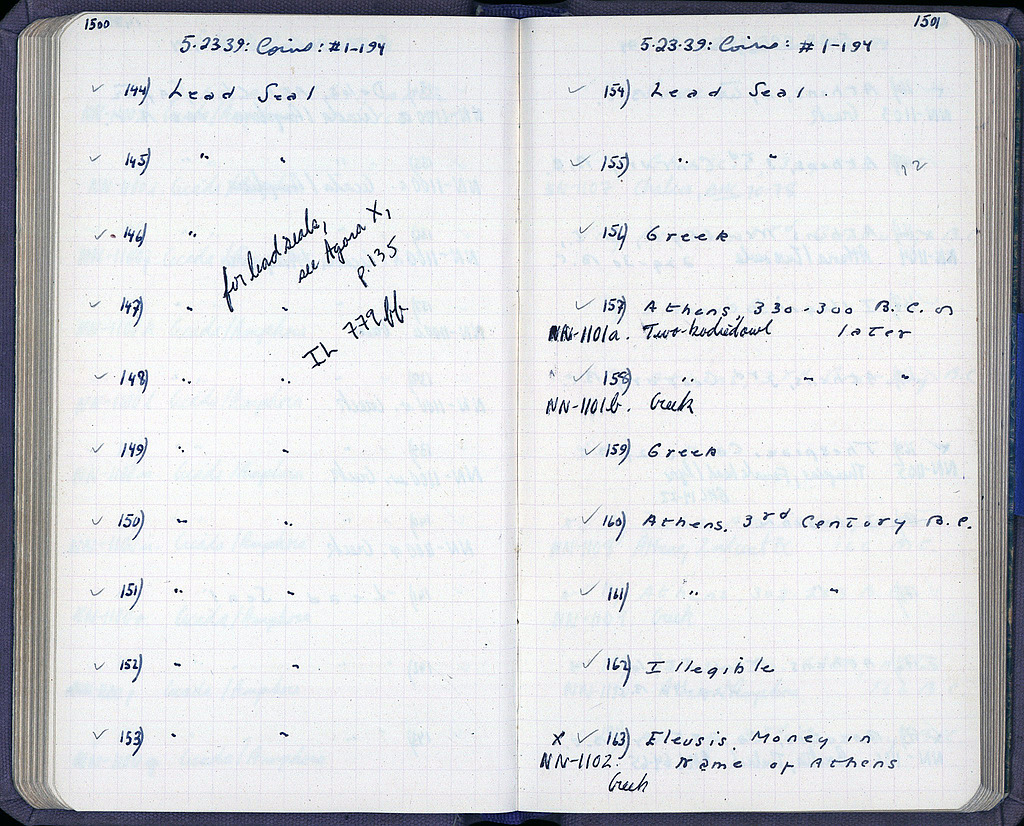 1500
5·23·39: Coins: #1-194
✓ 144) Lead Seal
✓ 145) " "
✓ 146) "
for lead seals,
see Agora X,
p. 135
✓ 147) " "
IL 779 bb
✓ 148) " "
✓ 149) " "
✓ 150) " "
✓ 151) " "
✓ 152) " "
✓ 153) " "
1501
5·23·39: Coins: #1-194
✓ 154) Lead Seal.
✓ 155) " "
✓ 156) Greek
✓ 157) Athens, 330-300 B.C. or
NN-1101a. Two-bodied owl later
158) " " "
NN-1101b. Greek
✓ 159) Greek
✓ 160) Athens, 3rd Century B.C.
✓ 161) " "
✓ 162) Illegible
X ✓ 163) Eleusis. Money in
NN-1102. Name of Athens
Greek